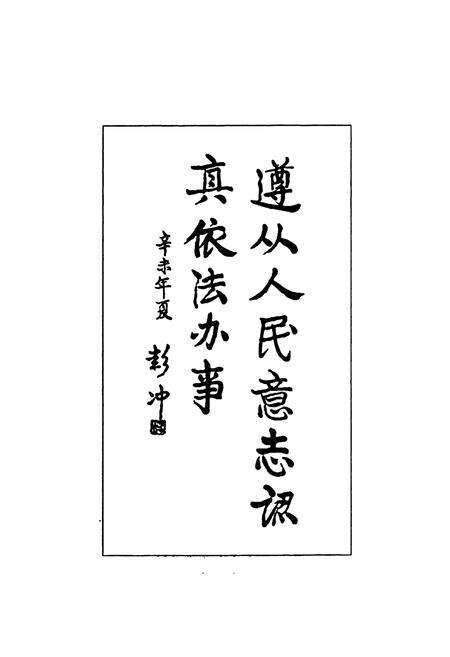 遵从人民意志認
真依法办事
辛未年夏
彭冲